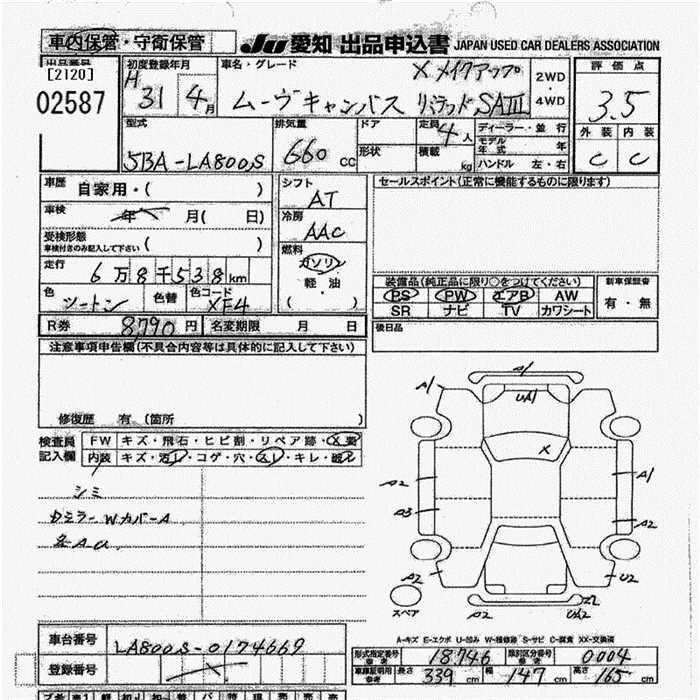 車内保管・守衛保管 JU 愛知 出品申込書 JAPAN USED CAR DEALERS ASSOCIATION
出品番号 [2120] 02587
初度登録年月 H 31 4月
車名・グレード × メイクアップ
ムーヴキャンバス リミテッド SAⅢ
2WD・4WD
評価点 3.5
外装 内装
C C
型式 5BA-LA800S
排気量 660 CC
ドア
形状
定員 4人
積載 kg
ディーラー・並行
モデル年式 年
ハンドル 左・右
車歴 自家用・( )
車検 年 月( 日)
受検形態 車検付きのみ記入して下さい ( )
走行 6万8千538km
色 ツートン 色替 色コード XF4
シフト AT
冷房 AAC
燃料 ガソリン
軽・油
( )
セールスポイント(正常に機能するものに限ります)
装備品(純正品に限り○をつけてください)
PS PW エアB AW
SR ナビ TV カワシート
新車保証書
有・無
R券 8790円 名変期限 月 日
後日品
注意事項申告欄(不具合内容等は具体的に記入して下さい)
修復歴 有 (箇所 )
検査員記入欄
FW キズ・飛石・ヒビ割・リペア跡・X要
内装 キズ・汚レ・コゲ・穴・スレ・キレ・破レ
シミ
カミラーWカバーA
各AU
A1
A1
UA1
X
A2
A1
A3
A2
A2
U2
スペア
A2
UA2
A-キズ E-エクボ U-凹み W-補修跡 S-サビ C-腐食 XX-交換済
車台番号 LA800S-0174669
登録番号
形式指定番号 参考 18746 類別区分番号 参考 0004
車庫証明用 参考 長さ 339 cm 幅 147 cm 高さ 165 cm